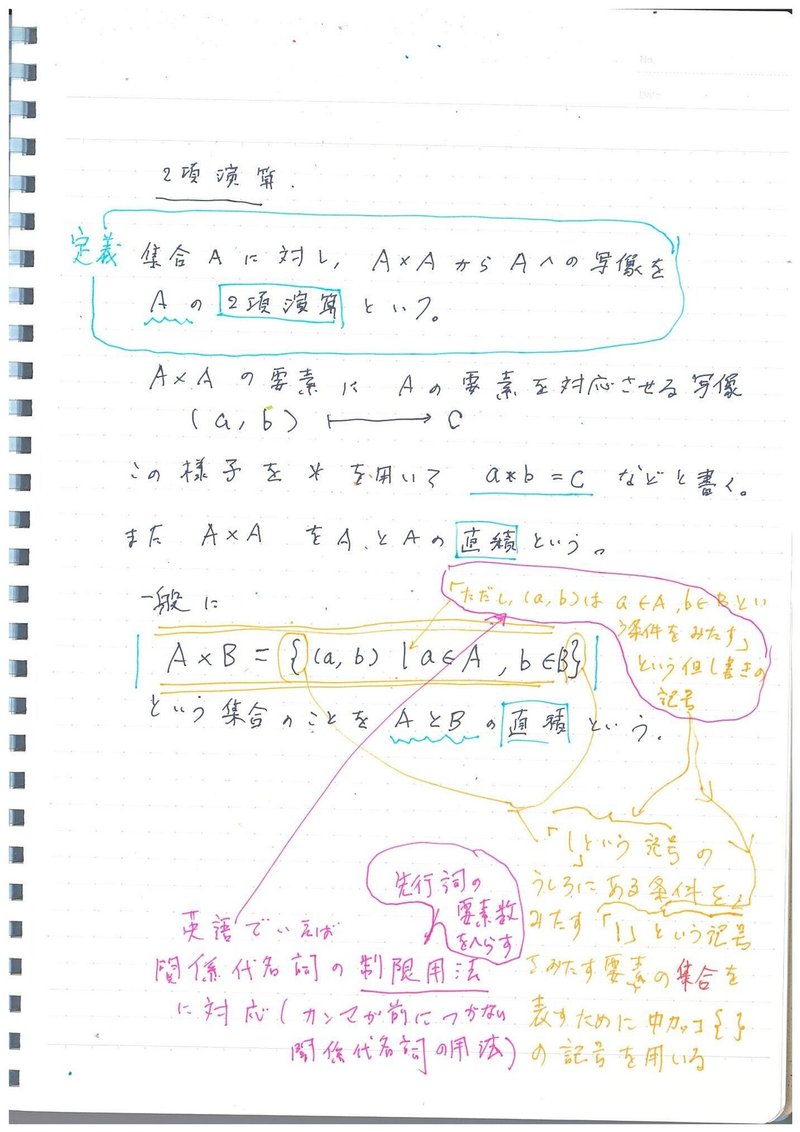 No.
Date
2項演算.
定義 集合Aに対し, A×AからAへの写像を
Aの2項演算という。
A×Aの要素にAの要素を対応させる写像
(a, b) ⟼ c
この様子を*を用いて a*b=c などと書く。
また A×A をAとAの直積という。
一般に
「ただし, (a, b)は a∈A, b∈Bとい
う条件をみたす」
という但し書きの
記号
A×B = {(a, b) | a∈A, b∈B}
という集合のことをAとBの直積という。
「|」という記号の
うしろにある条件を
みたす「|」という記号
をみたす要素の集合を
表すために中カッコ{ }
の記号を用いる
先行詞の
要素数
をへらす
英語でいえば
関係代名詞の制限用法
に対応(カンマが前につかない
関係代名詞の用法)